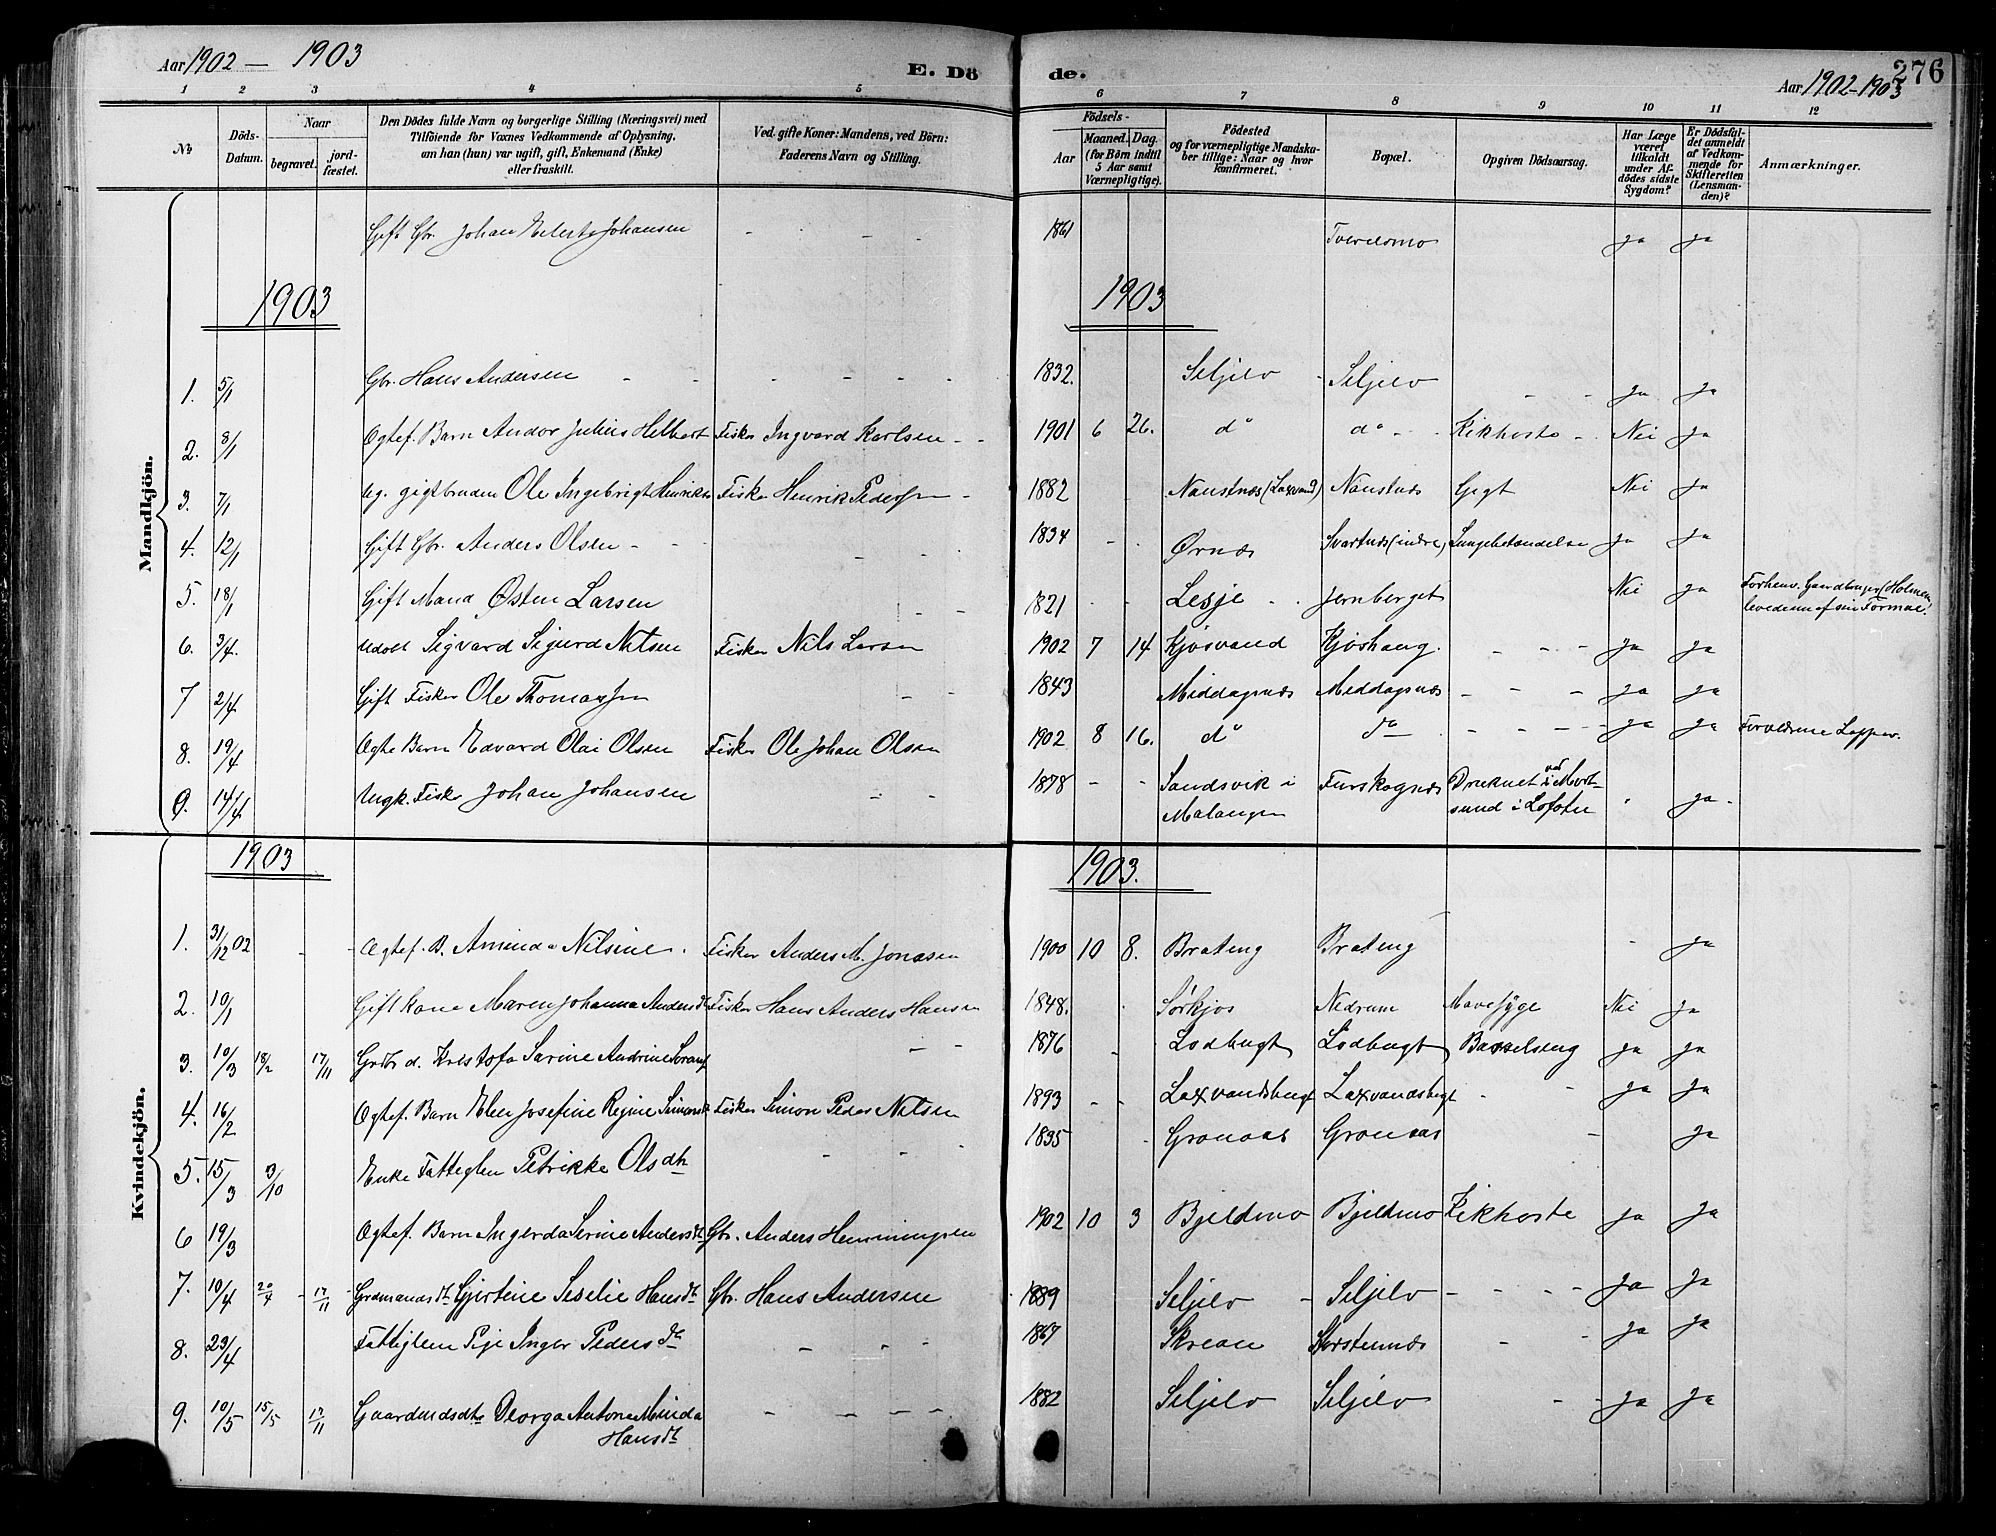 Aar 1902 — 1903
E. Dö
de.
276
Aar 1902-1903
1 2 3 4 5 6 7 8 9 10 11 12
№
Döds-
Datum.
Naar
begravet.
jord-
fæstet.
Den Dödes fulde Navn og borgerlige Stilling (Næringsvei) med
Tilföiende for Voxnes Vedkommende af Oplysning,
om han (hun) var ugift, gift, Enkemand (Enke)
eller fraskilt.
Ved gifte Koner: Mandens, ved Börn:
Faderens Navn og Stilling.
Födsels-
Aar
Maaned. Dag.
(for Börn indtil
5 Aar samt
Værnepligtige).
Födested
og for værnepligtige Mandska-
ber tillige: Naar og hvor
konfirmeret.
Bopæl.
Opgiven Dödsaarsag.
Har Læge
været
tilkaldt
under Af-
dödes sidste
Sygdom?
Er Dödsfal-
det anmeldt
af Vedkom-
mende for
Skifteretten
(Lensman-
den)?
Anmærkninger.
Mandkjön.
Gift Gbr. Johan Elerts Johansen - - - 1861 Tverelvmo ja ja
1903 1903
1. 5/1 Gbr. Hans Andersen - - - - - 1832. Seljelv - Seljelv - - ja ja
2. 8/1 Ogtef. Barn Andor Julius Hilbert Fisker Ingvard Karlsen - - 1901 6 26. do do - - Kikhoste - Nei ja
3. 7/1 ug. gigtbruden Ole Ingebrigt Henriks Fisker Henrik Pedersen - 1882 Naustnæs (Laxvand) Naustnæs Gigt Nei ja
4. 12/1 Gift Gbr. Anders Olsen - - - - 1834 - - Ørnæs Svartnæs (indre) Lungebetændelse ja ja
5. 18/1 Gift Mand Østen Larsen - - 1821 - - Lesje - - Jernberget Nei ja Forhenv. Gaardbruger (Holmen)
levede nu af sin Formue.
6. 3/4. Udøbt Sigvard Sigurd Nilsen Fisker Nils Larsen 1902 7 14 Kjosvand Kjoshaug. - - - ja ja
7 2/4 Gift Fisker Ole Thomassen - - 1843 Middagsnæs Middagsnæs - - - ja ja
8. 19/4 Ogte Barn Edvard Olai Olsen Fisker Ole Johan Olsen 1902 8 16. do do - - - - ja ja Forældrene Lapper.
9. 14/4 Ungk. Fisker Johan Johansen - - 1878 - - Sandsvik i
Malangen Furskognæs Druknet ved Mort-
sund i Lofoten - ja -
Kvindekjön.
1903 1903.
1. 31/12 02 - - Ogtef. B. Aminda Nilsine. Fisker Anders M. Jonasen 1900 10 8. Brateng Brateng - ja
2. 10/1 Gift Kone Maren Johanna Andersdt Fisker Hans Anders Hansen 1848. - Sørkjos Nedrum Mavesyge Nei ja
3. 10/3 18/2 17/11 Grdbr d. Kristofa Sarine Andrine - - 1876 - Lodbugt Lodbugt Barselseng ja ja
4. 16/2 Ogtef. Barn Elen Josefine Regine Simonsdt Fisker Simon Peder Nilsen 1893 - - Laxvandsbugt Laxvandsbugt - - ja ja
5. 15/3 3/10 Enke Fattiglem Petrikke Olsdtr - - 1835 - Gronaas Gronaas - ja
6 19/3 Ogtef. Barn Ingerda Serine Andersdt Gbr. Anders Henningsen 1902 10 3 Bjeldmo Bjeldmo Kikhoste ja ja
7. 10/4 20/4 - 17/11 Grdmandsdt Gjertine Seselie Hansdt Gbr. Hans Andersen 1889 Seljelv - Seljelv - - - - ja ja
8. 23/4 Fattiglem Pige Inger Pedersdt - - - 1867 Skreon - - ja ja
9. 10/5 15/5 17/11 Gaardmdsdtr Georga Antona Minda
Hansdt - - - - 1882 Seljelv Seljelv - ja ja